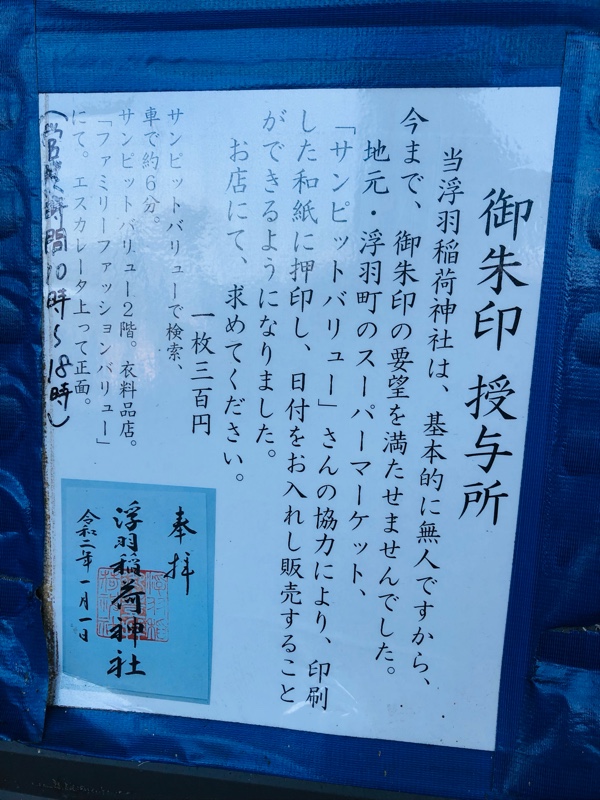 御朱印 授与所
当浮羽稲荷神社は、基本的に無人ですから、
今まで、御朱印の要望を満たせませんでした。
地元・浮羽町のスーパーマーケット、
「サンピットバリュー」さんの協力により、印刷
した和紙に押印し、日付をお入れし販売すること
ができるようになりました。
お店にて、求めてください。
一枚三百円
サンピットバリューで検索、
車で約6分。
サンピットバリュー2階。衣料品店。
「ファミリーファッションバリュー」
にて。エスカレータ上って正面。
時間10時~18時)
奉拝
浮羽稲荷神社
令和二年一月一日